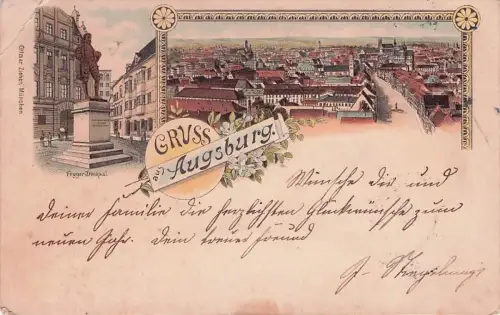 Ottmar Zieher, München.
Fugger-Denkmal.
GRUSS
aus Augsburg.
Wünsche Dir und
deiner Familie die herzlichsten Glückwünsche zum
neuen Jahr. Dein treuer Freund